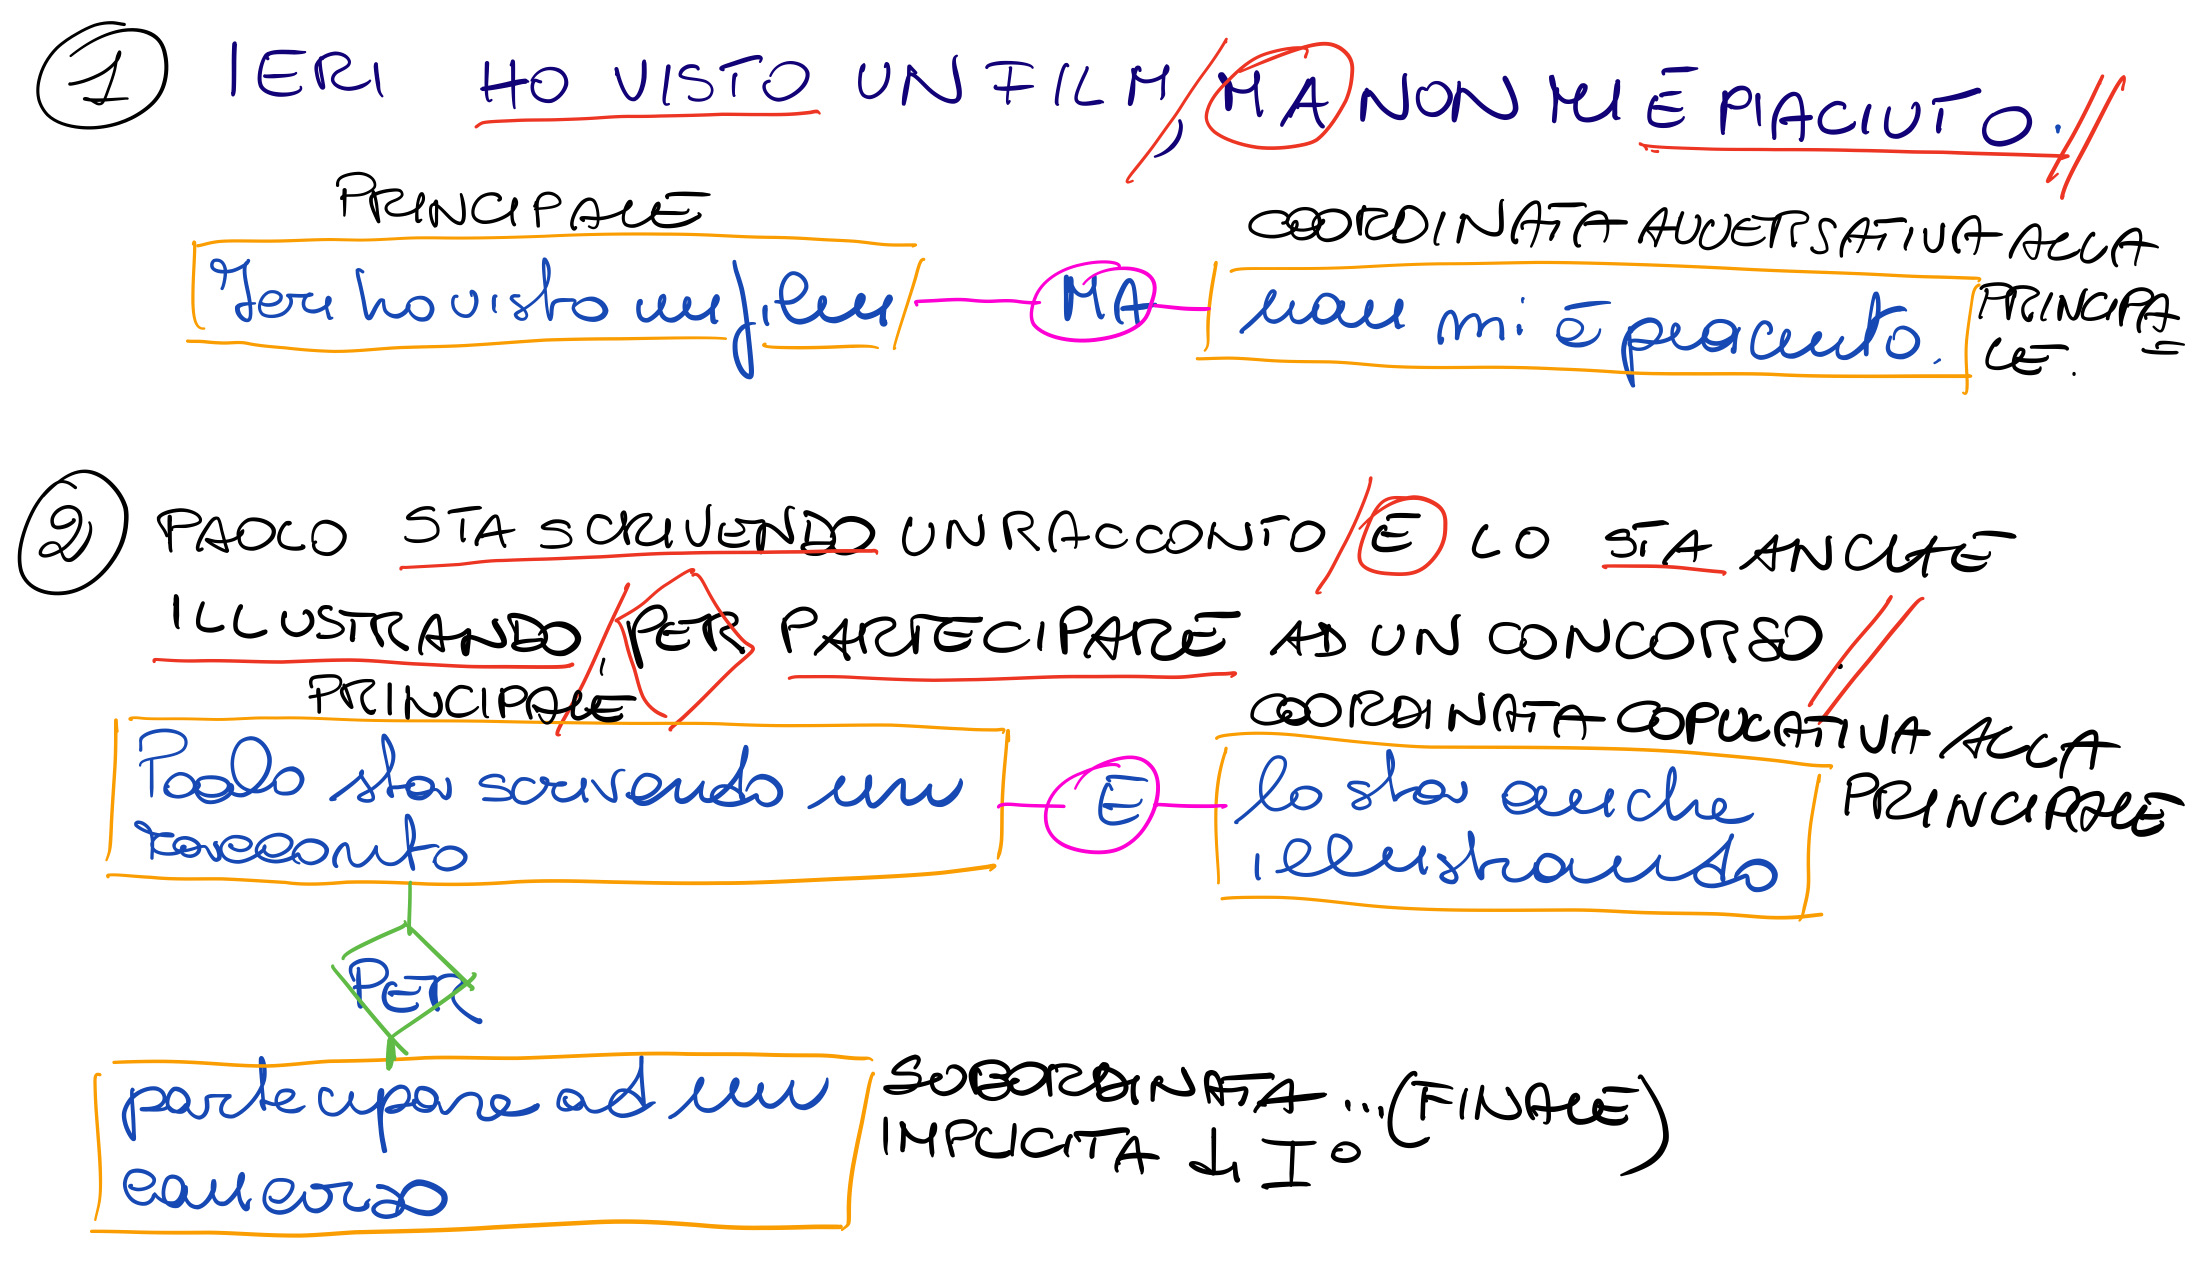 1 IERI HO VISTO UN FILM, MA NON MI È PIACIUTO.
PRINCIPALE
COORDINATA AVVERSATIVA ALLA
PRINCIPA=
LE.
Ieri ho visto un film MA non mi è piaciuto.
2 PAOLO STA SCRIVENDO UN RACCONTO E LO STA ANCHE
ILLUSTRANDO, PER PARTECIPARE AD UN CONCORSO.
PRINCIPALE
COORDINATA COPULATIVA ALLA
PRINCIPALE
Paolo sta scrivendo un E lo sta anche
racconto illustrando
PER
partecipare ad un
concorso
SUBORDINATA ... (FINALE)
IMPLICITA di I°